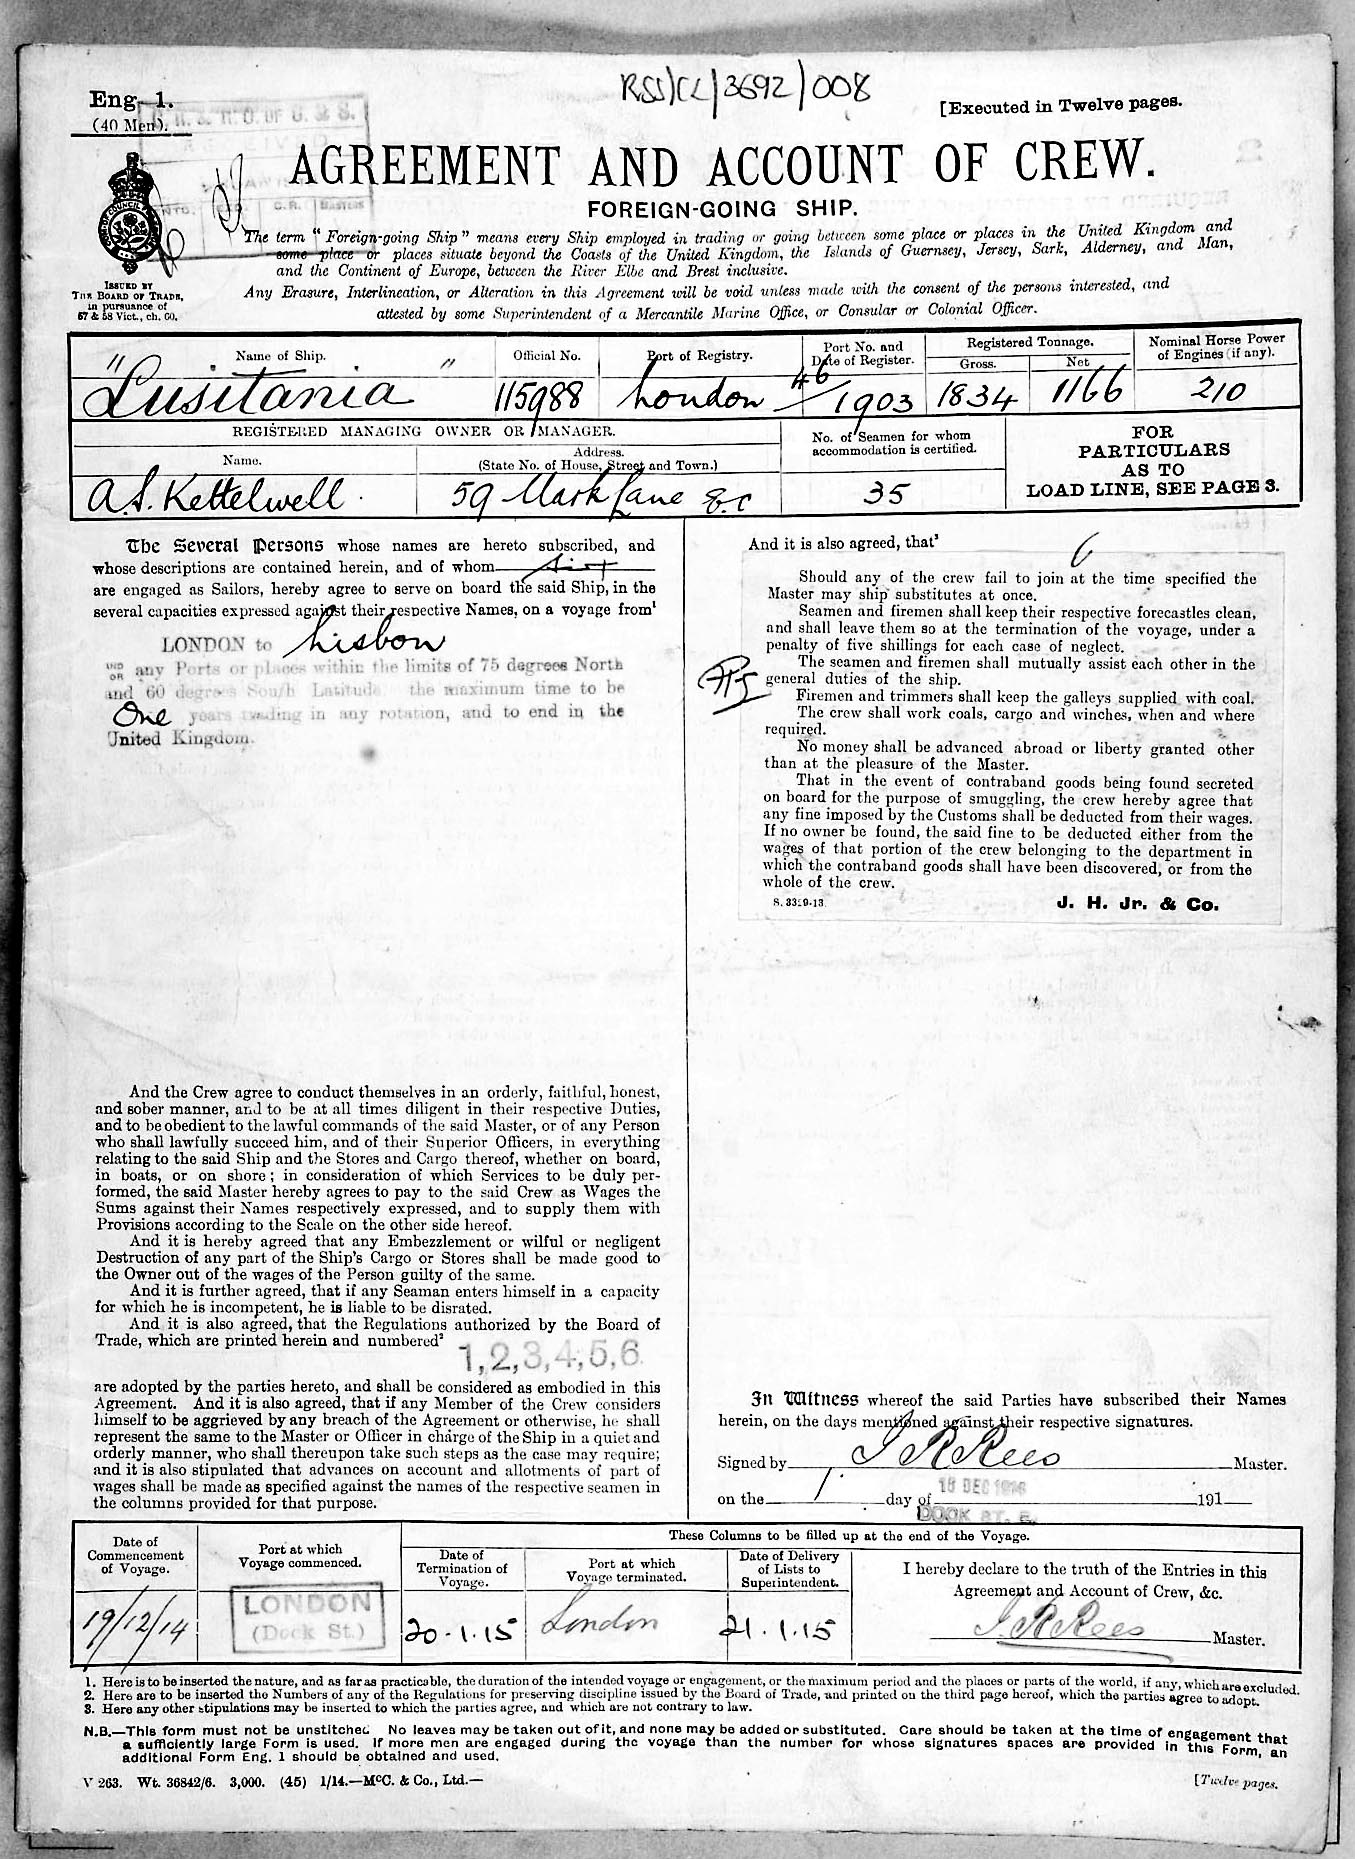 RSS/CL/3692/008
Eng. 1.
(40 Men).
[Executed in Twelve pages.
AGREEMENT AND ACCOUNT OF CREW.
FOREIGN-GOING SHIP.
The term "Foreign-going Ship" means every Ship employed in trading or going between some place or places in the United Kingdom and
some place or places situate beyond the Coasts of the United Kingdom, the Islands of Guernsey, Jersey, Sark, Alderney, and Man,
and the Continent of Europe, between the River Elbe and Brest inclusive.
Any Erasure, Interlineation, or Alteration in this Agreement will be void unless made with the consent of the persons interested, and
attested by some Superintendent of a Mercantile Marine Office, or Consular or Colonial Officer.
ISSUED BY
THE BOARD OF TRADE,
in pursuance of
57 & 58 Vict., ch. 60.
Name of Ship.
Official No.
Port of Registry.
Port No. and
Date of Register.
Registered Tonnage.
Gross.
Net
Nominal Horse Power
of Engines (if any).
"Lusitania"
115988
London
46/1903
1834
1166
210
REGISTERED MANAGING OWNER OR MANAGER.
Name.
Address.
(State No. of House, Street and Town.)
No. of Seamen for whom
accommodation is certified.
FOR
PARTICULARS
AS TO
LOAD LINE, SEE PAGE 3.
A.S. Kettelwell.
59 Mark Lane E.C
35
The Several Persons whose names are hereto subscribed, and
whose descriptions are contained herein, and of whom
are engaged as Sailors, hereby agree to serve on board the said Ship, in the
several capacities expressed against their respective Names, on a voyage from¹
LONDON to Lisbon
AND
OR any Ports or places within the limits of 75 degrees North
and 60 degrees South Latitude the maximum time to be
One years trading in any rotation, and to end in the
United Kingdom.
And the Crew agree to conduct themselves in an orderly, faithful, honest,
and sober manner, and to be at all times diligent in their respective Duties,
and to be obedient to the lawful commands of the said Master, or of any Person
who shall lawfully succeed him, and of their Superior Officers, in everything
relating to the said Ship and the Stores and Cargo thereof, whether on board,
in boats, or on shore; in consideration of which Services to be duly per-
formed, the said Master hereby agrees to pay to the said Crew as Wages the
Sums against their Names respectively expressed, and to supply them with
Provisions according to the Scale on the other side hereof.
And it is hereby agreed that any Embezzlement or wilful or negligent
Destruction of any part of the Ship's Cargo or Stores shall be made good to
the Owner out of the wages of the Person guilty of the same.
And it is further agreed, that if any Seaman enters himself in a capacity
for which he is incompetent, he is liable to be disrated.
And it is also agreed, that the Regulations authorized by the Board of
Trade, which are printed herein and numbered²
1,2,3,4,5,6.
are adopted by the parties hereto, and shall be considered as embodied in this
Agreement. And it is also agreed, that if any Member of the Crew considers
himself to be aggrieved by any breach of the Agreement or otherwise, he shall
represent the same to the Master or Officer in charge of the Ship in a quiet and
orderly manner, who shall thereupon take such steps as the case may require;
and it is also stipulated that advances on account and allotments of part of
wages shall be made as specified against the names of the respective seamen in
the columns provided for that purpose.
And it is also agreed, that³
6
Should any of the crew fail to join at the time specified the
Master may ship substitutes at once.
Seamen and firemen shall keep their respective forecastles clean,
and shall leave them so at the termination of the voyage, under a
penalty of five shillings for each case of neglect.
The seamen and firemen shall mutually assist each other in the
general duties of the ship.
Firemen and trimmers shall keep the galleys supplied with coal.
The crew shall work coals, cargo and winches, when and where
required.
No money shall be advanced abroad or liberty granted other
than at the pleasure of the Master.
That in the event of contraband goods being found secreted
on board for the purpose of smuggling, the crew hereby agree that
any fine imposed by the Customs shall be deducted from their wages.
If no owner be found, the said fine to be deducted either from the
wages of that portion of the crew belonging to the department in
which the contraband goods shall have been discovered, or from the
whole of the crew.
J. H. Jr. & Co.
In Witness whereof the said Parties have subscribed their Names
herein, on the days mentioned against their respective signatures.
Signed by J R Rees Master.
on the day of 18 DEC 1914 191
DOCK ST. E.
Date of
Commencement
of Voyage.
Port at which
Voyage commenced.
These Columns to be filled up at the end of the Voyage.
Date of
Termination of
Voyage.
Port at which
Voyage terminated.
Date of Delivery
of Lists to
Superintendent.
I hereby declare to the truth of the Entries in this
Agreement and Account of Crew, &c.
19/12/14
LONDON
(Dock St.)
20.1.15
London
21.1.15
J. R Rees Master.
1. Here is to be inserted the nature, and as far as practicable, the duration of the intended voyage or engagement, or the maximum period and the places or parts of the world, if any, which are excluded.
2. Here are to be inserted the Numbers of any of the Regulations for preserving discipline issued by the Board of Trade, and printed on the third page hereof, which the parties agree to adopt.
3. Here any other stipulations may be inserted to which the parties agree, and which are not contrary to law.
N.B.—This form must not be unstitched. No leaves may be taken out of it, and none may be added or substituted. Care should be taken at the time of engagement that
a sufficiently large Form is used. If more men are engaged during the voyage than the number for whose signatures spaces are provided in this Form, an
additional Form Eng. 1 should be obtained and used.
V 263. Wt. 36842/6. 3,000. (45) 1/14.—McC. & Co., Ltd.—
[Twelve pages.